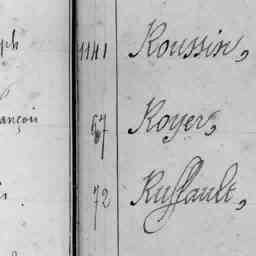 ph
1141 Roussin,
ançois
67 Royer,
72 Ruffault,